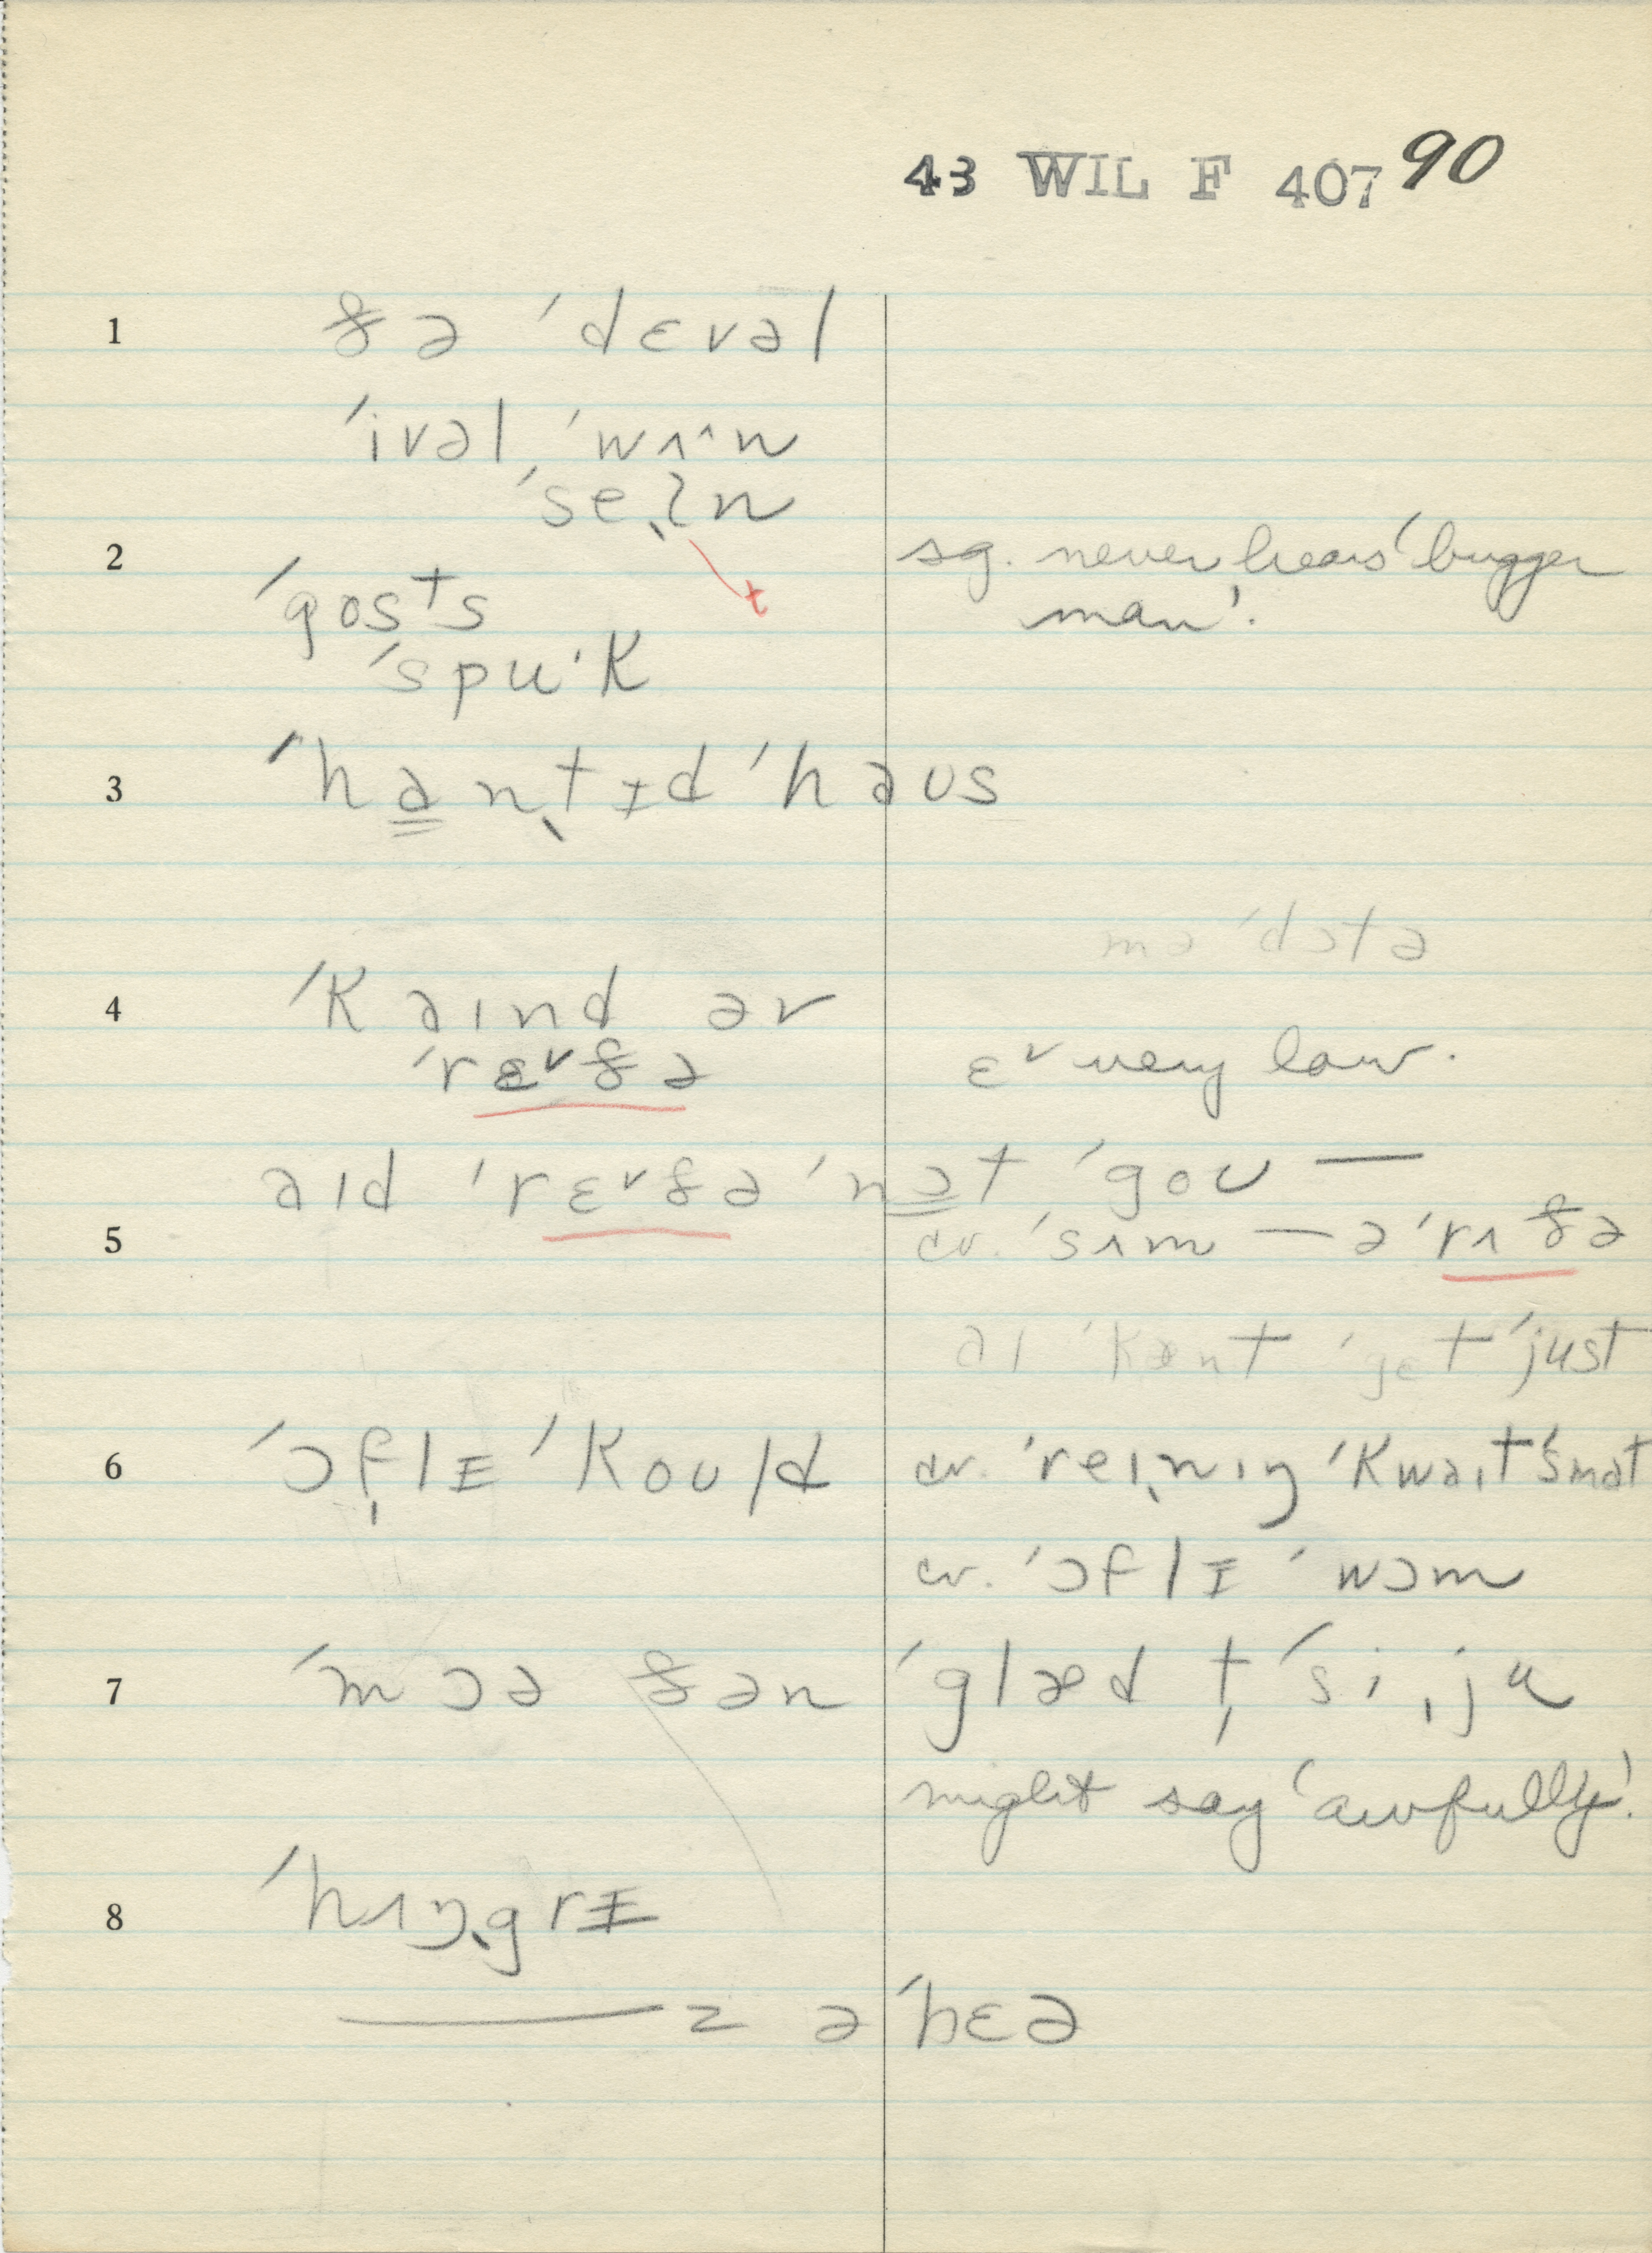 43 WIL F 407 90
1 ðə ˈdɛvəl
ˈivəl ˈwʌ^n
ˈseɪ̖ʔn
t
2 sg. never hears 'bugger
man'.
ˈgos⁺s
ˈspuˑk
3 ˈhan̖tɪd ˈhaʊs
mə ˈdɔtə
4 ˈkaɪnd əv
ˈrɛ˅ðə ɛ˅ very low.
aɪd ˈrɛ˅ðə ˈnat ˈgoʊ —
5 cv. ˈsʌm — əˈrʌðə
aɪ ˈkænt ˈgɛt ˈjust
6 ˈɔf̩lɪ ˈkoʊld cv. ˈreɪ̖nɪŋ ˈkwaɪt ˈsmat
cv. ˈɔflɪ ˈwɔm
7 ˈmɔə ðən ˈglæd t̩ ˈsi ˌju
might say 'awfully'.
8 ˈhʌŋ̖grɪ
— z əˈhɛə